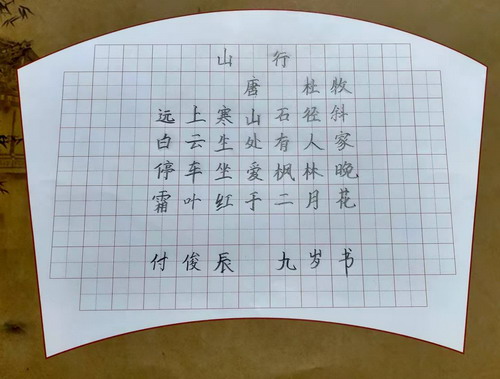 山行
唐 杜牧
远上寒山石径斜
白云生处有人家
停车坐爱枫林晚
霜叶红于二月花
付俊辰 九岁书